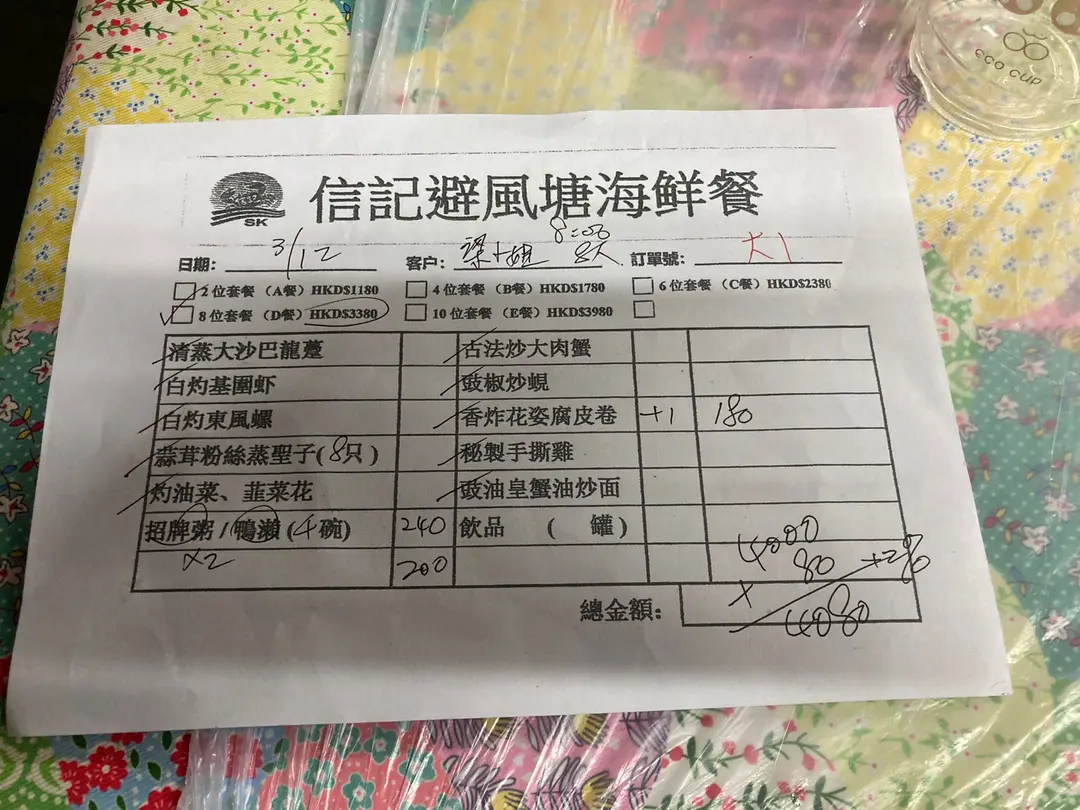 SK 信記避風塘海鮮餐
日期: 3/12 客户: 梁小姐 8:00 訂單號: 大1
2 位套餐 (A餐) HKD$1180 4 位套餐 (B餐) HKD$1780 6 位套餐 (C餐) HKD$2380
8 位套餐 (D餐) HKD$3380 10 位套餐 (E餐) HKD$3980
清蒸大沙巴龍躉 古法炒大肉蟹
白灼基圍虾 豉椒炒蜆
白灼東風螺 香炸花姿腐皮卷 +1 180
蒜茸粉絲蒸聖子(8只) 秘製手撕雞
灼油菜、韮菜花 豉油皇蟹油炒面
招牌粥/鴨瀨(4碗) 240 飲品 ( 罐)
x2 200
4000
+ 80 +2%
總金額: 4080
CCO CUP